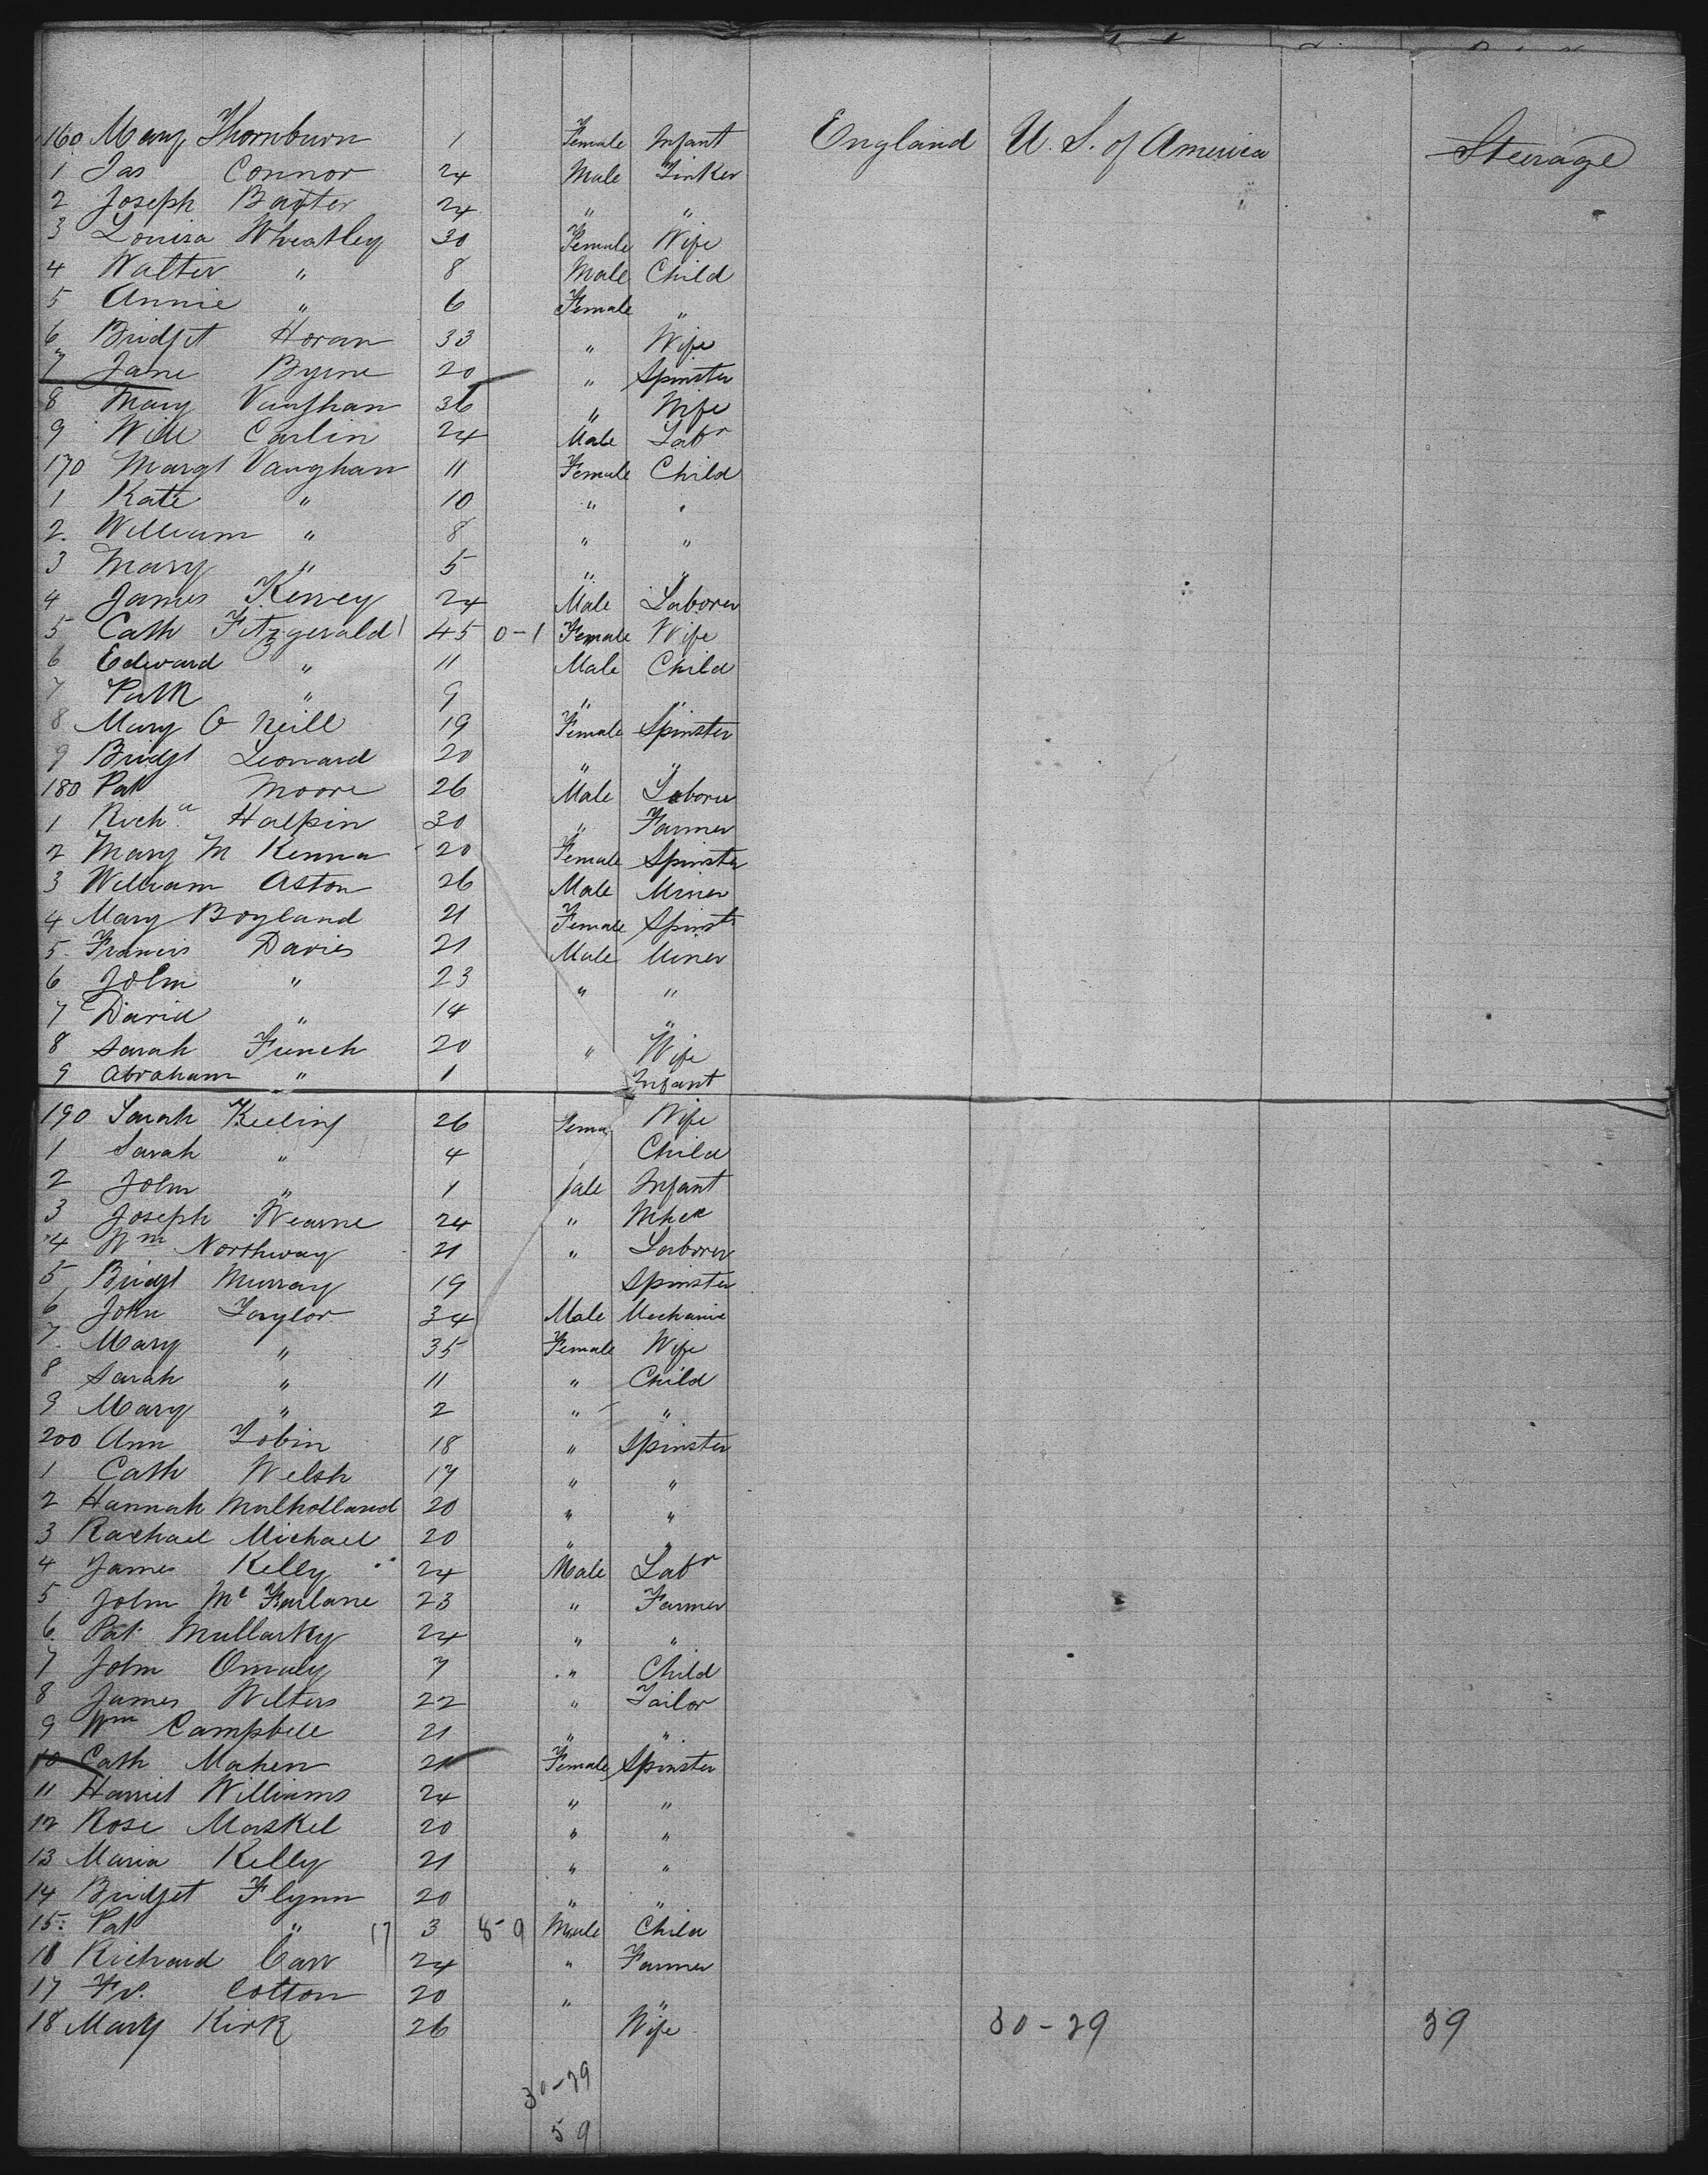 160 Mary Thornburn 1 Female Infant England U. S. of America Steerage
1 Jas Connor 24 Male Tinker
2 Joseph Baxter 24 " "
3 Louisa Wheatley 30 Female Wife
4 Walter " 8 Male Child
5 Annie " 6 Female "
6 Bridget Horan 33 " Wife
7 Jane Byrne 20 " Spinster
8 Mary Vaughan 36 " Wife
9 Will Carlin 24 Male Labr
170 Margt Vaughan 11 Female Child
1 Kate " 10 " "
2. William " 8 " "
3 Mary " 5 " "
4 James 24 Male Laborer
5 Cath Fitzgerald 45 0-1 Female Wife
6 Edward " 11 Male Child
7 Patk " 9 " "
8 Mary O Neill 19 Female Spinster
9 Bridgt Leonard 20 " "
180 Pat Moore 26 Male Laborer
1 Richd Halpin 30 " Farmer
2 Mary M Kenna 20 Female Spinster
3 William Aston 26 Male Miner
4 Mary Boyland 21 Female Spinstr
5. Francis Davies 21 Male Miner
6 John " 23 " "
7 David " 14 "
8 Sarah Funch 20 " Wife
9 Abraham " 1 Infant
190 Sarah Keeling 26 Fema Wife
1 Sarah " 4 Child
2 John " 1 ale Infant
3 Joseph Wearne 24 "
4 Wm Northway 21 " Laborer
5 Bridgt Murray 19 Spinster
6 John Taylor 34 Male Mechanic
7. Mary " 35 Female Wife
8 Sarah " 11 " Child
9 Mary " 2 " "
200 Ann Tobin 18 " Spinster
1 Cath Welsh 17 " "
2 Hannah Mulholland 20 " "
3 Rachael Michael 20 " "
4 James Kelly 24 Male Labr
5 John Mc Farlane 23 " Farmer
6. Pat Mullarky 24 " "
7 John Omaly 7 " Child
8 James Welters 22 " Tailor
9 Wm Campbell 21 " "
10 Cath Mahen 21 Female Spinster
11 Harriet Williams 24 " "
12 Rose Maskel 20 " "
13 Maria Kelly 21 " "
14 Bridget Flynn 20 " "
15. Pat " 17 3 8-9 Male Child
16 Richard Carr 24 " Farmer
17 Fr. Cotton 20 " "
18 Mary Kirk 26 Wife 30-29 59
30-29
59